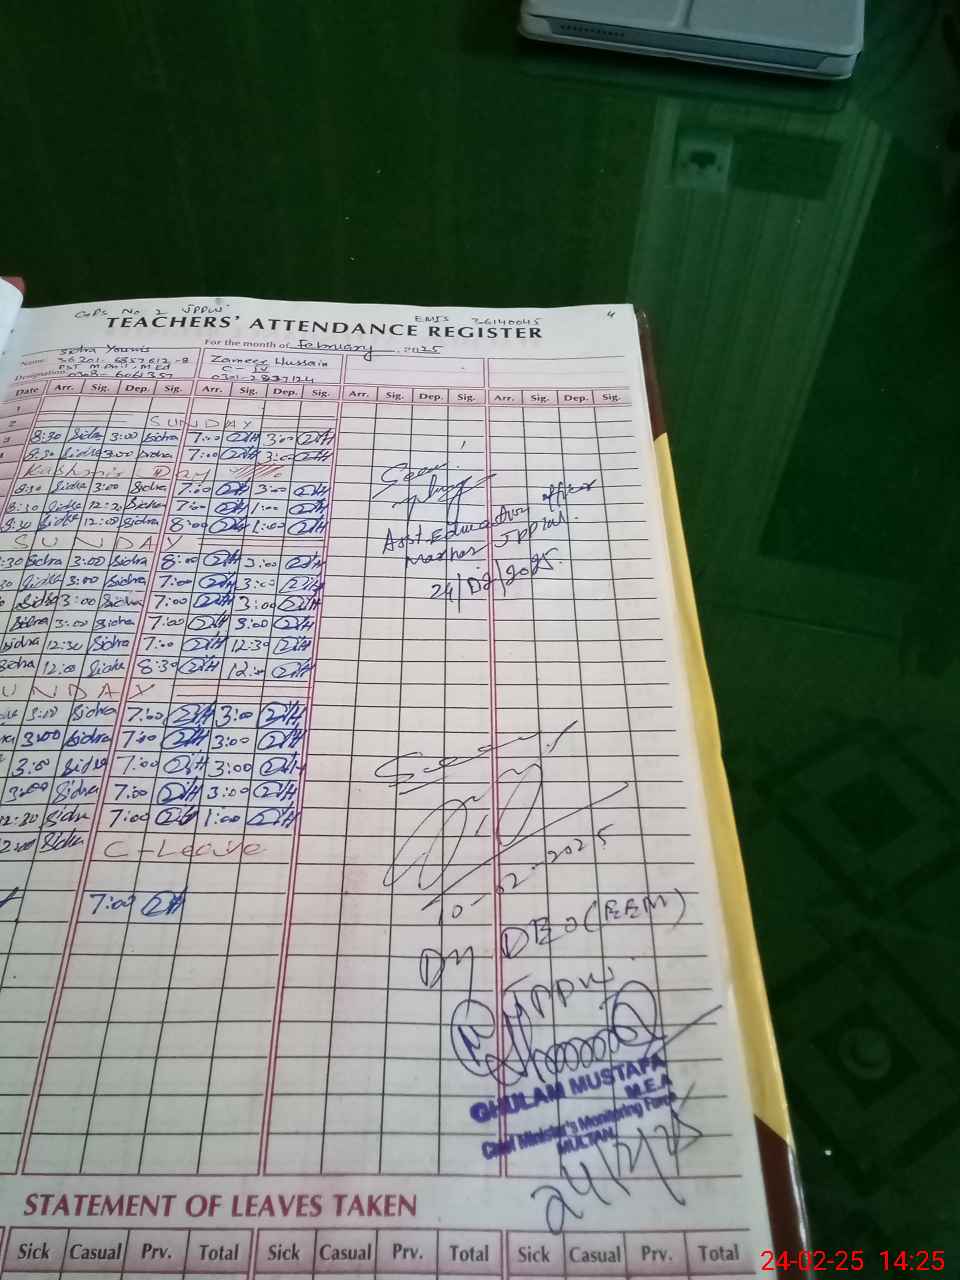 GGPS No 2 JPPW EMIS 36140045 4
TEACHERS' ATTENDANCE REGISTER
For the month of February 2025
Name Sidra Younis Zameer Hussain
36201-6857612-8 C-IV
Designation PST M.Phil, M.Ed
Date Arr. Sig. Dep. Sig. Arr. Sig. Dep. Sig. Arr. Sig. Dep. Sig. Arr. Sig. Dep. Sig.
1
2 SUNDAY
3 8:30 Sidra 3:00 Sidra 7:00 3:00
4 8:30 Sidra 3:00 Sidra 7:00 3:00
Kashmir Day
8:30 Sidra 3:00 Sidra 7:00 3:00
8:30 Sidra 12:30 Sidra 7:00 1:00
8:30 Sidra 12:00 Sidra 8:00 1:00
SUNDAY
:30 Sidra 3:00 Sidra 8:00 3:00
30 Sidra 3:00 Sidra 7:00 3:00
Sidra 3:00 Sidra 7:00 3:00
Sidra 3:00 Sidra 7:00 3:00
Sidra 12:30 Sidra 7:00 12:30
Sidra 12:00 Sidra 8:30
UNDAY
3:00 Sidra 7:00 3:00
3:00 Sidra 7:00 3:00
3:00 Sidra 7:00 3:00
3:00 Sidra 7:00 3:00
12:30 Sidra 7:00 1:00
Sidra C-Leave
7:00
Seen
Asst. Education officer
Markaz JPPW
24/02/2025
Seen
10-02-2025
Dy DEO (EEM)
JPPW
GHULAM MUSTAFA
M.E.A
Chief Minister's Monitoring Force
MULTAN
24/2/25
STATEMENT OF LEAVES TAKEN
Sick Casual Prv. Total Sick Casual Prv. Total Sick Casual Prv. Total
24-02-25 14:25